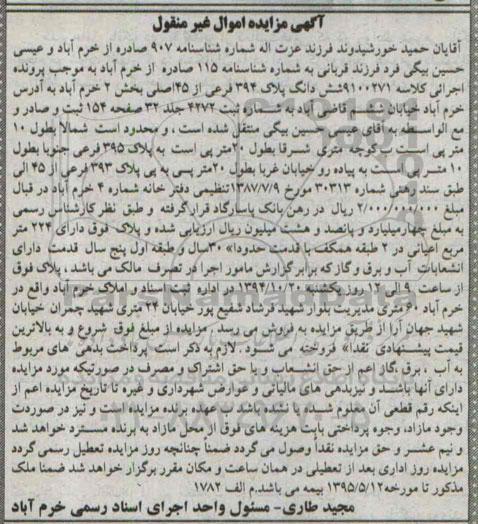 آگهی مزایده اموال غیر منقول
آقایان حمید خورشیدوند فرزند عزت اله شماره شناسنامه ۹۰۷ صادره از خرم آباد و عیسی
حسین بیگی فرد فرزند قربانی به شماره شناسنامه ۱۱۵ صادره از خرم آباد به موجب پرونده
اجرائی کلاسه ۹۱۰۰۲۷۱شش دانگ پلاک ۳۹۴ فرعی از ۴۵اصلی بخش ۲ خرم آباد به آدرس
خرم آباد خیابان قاضی آباد به شماره ثبت ۴۲۷۲ جلد ۳۲ صفحه ۱۵۴ ثبت و صادر و
مع الواسطه به آقای عیسی حسین بیگی منتقل شده است ، و محدود است شمالا بطول ۱۰
متر پی است به کوچه متری شرقا بطول ۲۰متر پی است به پلاک ۳۹۵ فرعی جنوبا بطول
۱۰ متر پی است به پیاده رو خیابان غربا بطول ۲۰متر پی به پی پلاک ۳۹۳ فرعی از ۴۵ الی
طبق سند رهنی شماره ۳۰۳۱۳ مورخ ۱۳۸۷/۷/۹تنظیمی دفتر خانه شماره ۴ خرم آباد در قبال
مبلغ ۲/۰۰۰/۰۰۰/۰۰۰ ریال در رهن بانک پاسارگاد قرار گرفته و طبق نظر کارشناس رسمی
به مبلغ چهارمیلیارد و پانصد و هشت میلیون ریال ارزیابی شده و پلاک فوق دارای ۲۲۴ متر
مربع اعیانی در ۲ طبقه همکف با قدمت حدودا» ۳۰سال و طبقه اول پنج سال قدمت دارای
انشعابات آب و برق و گاز که برابر گزارش مامور اجرا در تصرف مالک می باشد ، پلاک فوق
از ساعت ۹ الی ۱۲ روز یکشنبه ۱۳۹۴/۱۰/۲۰ در اداره ثبت اسناد و املاک خرم آباد واقع در
خرم آباد ۶۰ متری مدیریت بلوار شهید فرشاد شفیع پور خیابان ۲۴ متری شهید چمران خیابان
شهید جهان آرا از طریق مزایده به فروش می رسد . مزایده از مبلغ فوق شروع و به بالاترین
قیمت پیشنهادی نقدا» فروخته می شود . لازم به ذکر است پرداخت بدهی های مربوط
به آب ، برق ،گاز اعم از حق انشعاب و یا حق اشتراک و مصرف در صورتیکه مورد مزایده
دارای آنها باشد و نیزبدهی های مالیاتی و عوارض شهرداری و غیره تا تاریخ مزایده اعم از
اینکه رقم قطعی آن معلوم شده یا نشده باشد به عهده برنده مزایده است و نیز در صوردت
وجود مازاد، وجوه پرداختی بابت هزینه های فوق از محل مازاد به برنده مسترد خواهد شد
و نیم عشر و حق مزایده نقداً وصول می گردد ضمناً چنانچه روز مزایده تعطیل رسمی گردد
مزایده روز اداری بعد از تعطیلی در همان ساعت و مکان مقرر برگزار خواهد شد ضمنا ملک
مذکور تا مورخه۱۳۹۵/۵/۱۲ بیمه می باشد.م الف ۱۷۸۲
مجید طاری- مسئول واحد اجرای اسناد رسمی خرم آباد